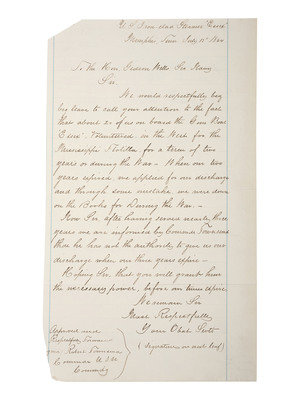 U. S. Iron clad Steamer "Essex"
Memphis, Tenn July 11th
To The Hon. Gideon Wells, Sec Navy
Sir
We would respectfully beg
leave to call your attention to the fact
that about 20 of us on board the Gun Boat
"Essex" Volunteered in the West for the
Mississippi Flotilla for a term of two
years or during the War. – When our two
years expired we applied for our discharge
and through some mistake we were down
on the Books for During the War. –
Now Sir, after having served nearly three
years we are informed by Commr Townsend
that he has not the authority to give us our
discharge when our three years expire –
Hoping Sir that you will grant him
the necessary power, before our time expires
We remain Sir
Most Respectfully
Your Obdt Servts
(Signatures on next leaf)
Approved and
Respectfully Forwarded
Robt Townsend
Commander U.S.N
Commndg